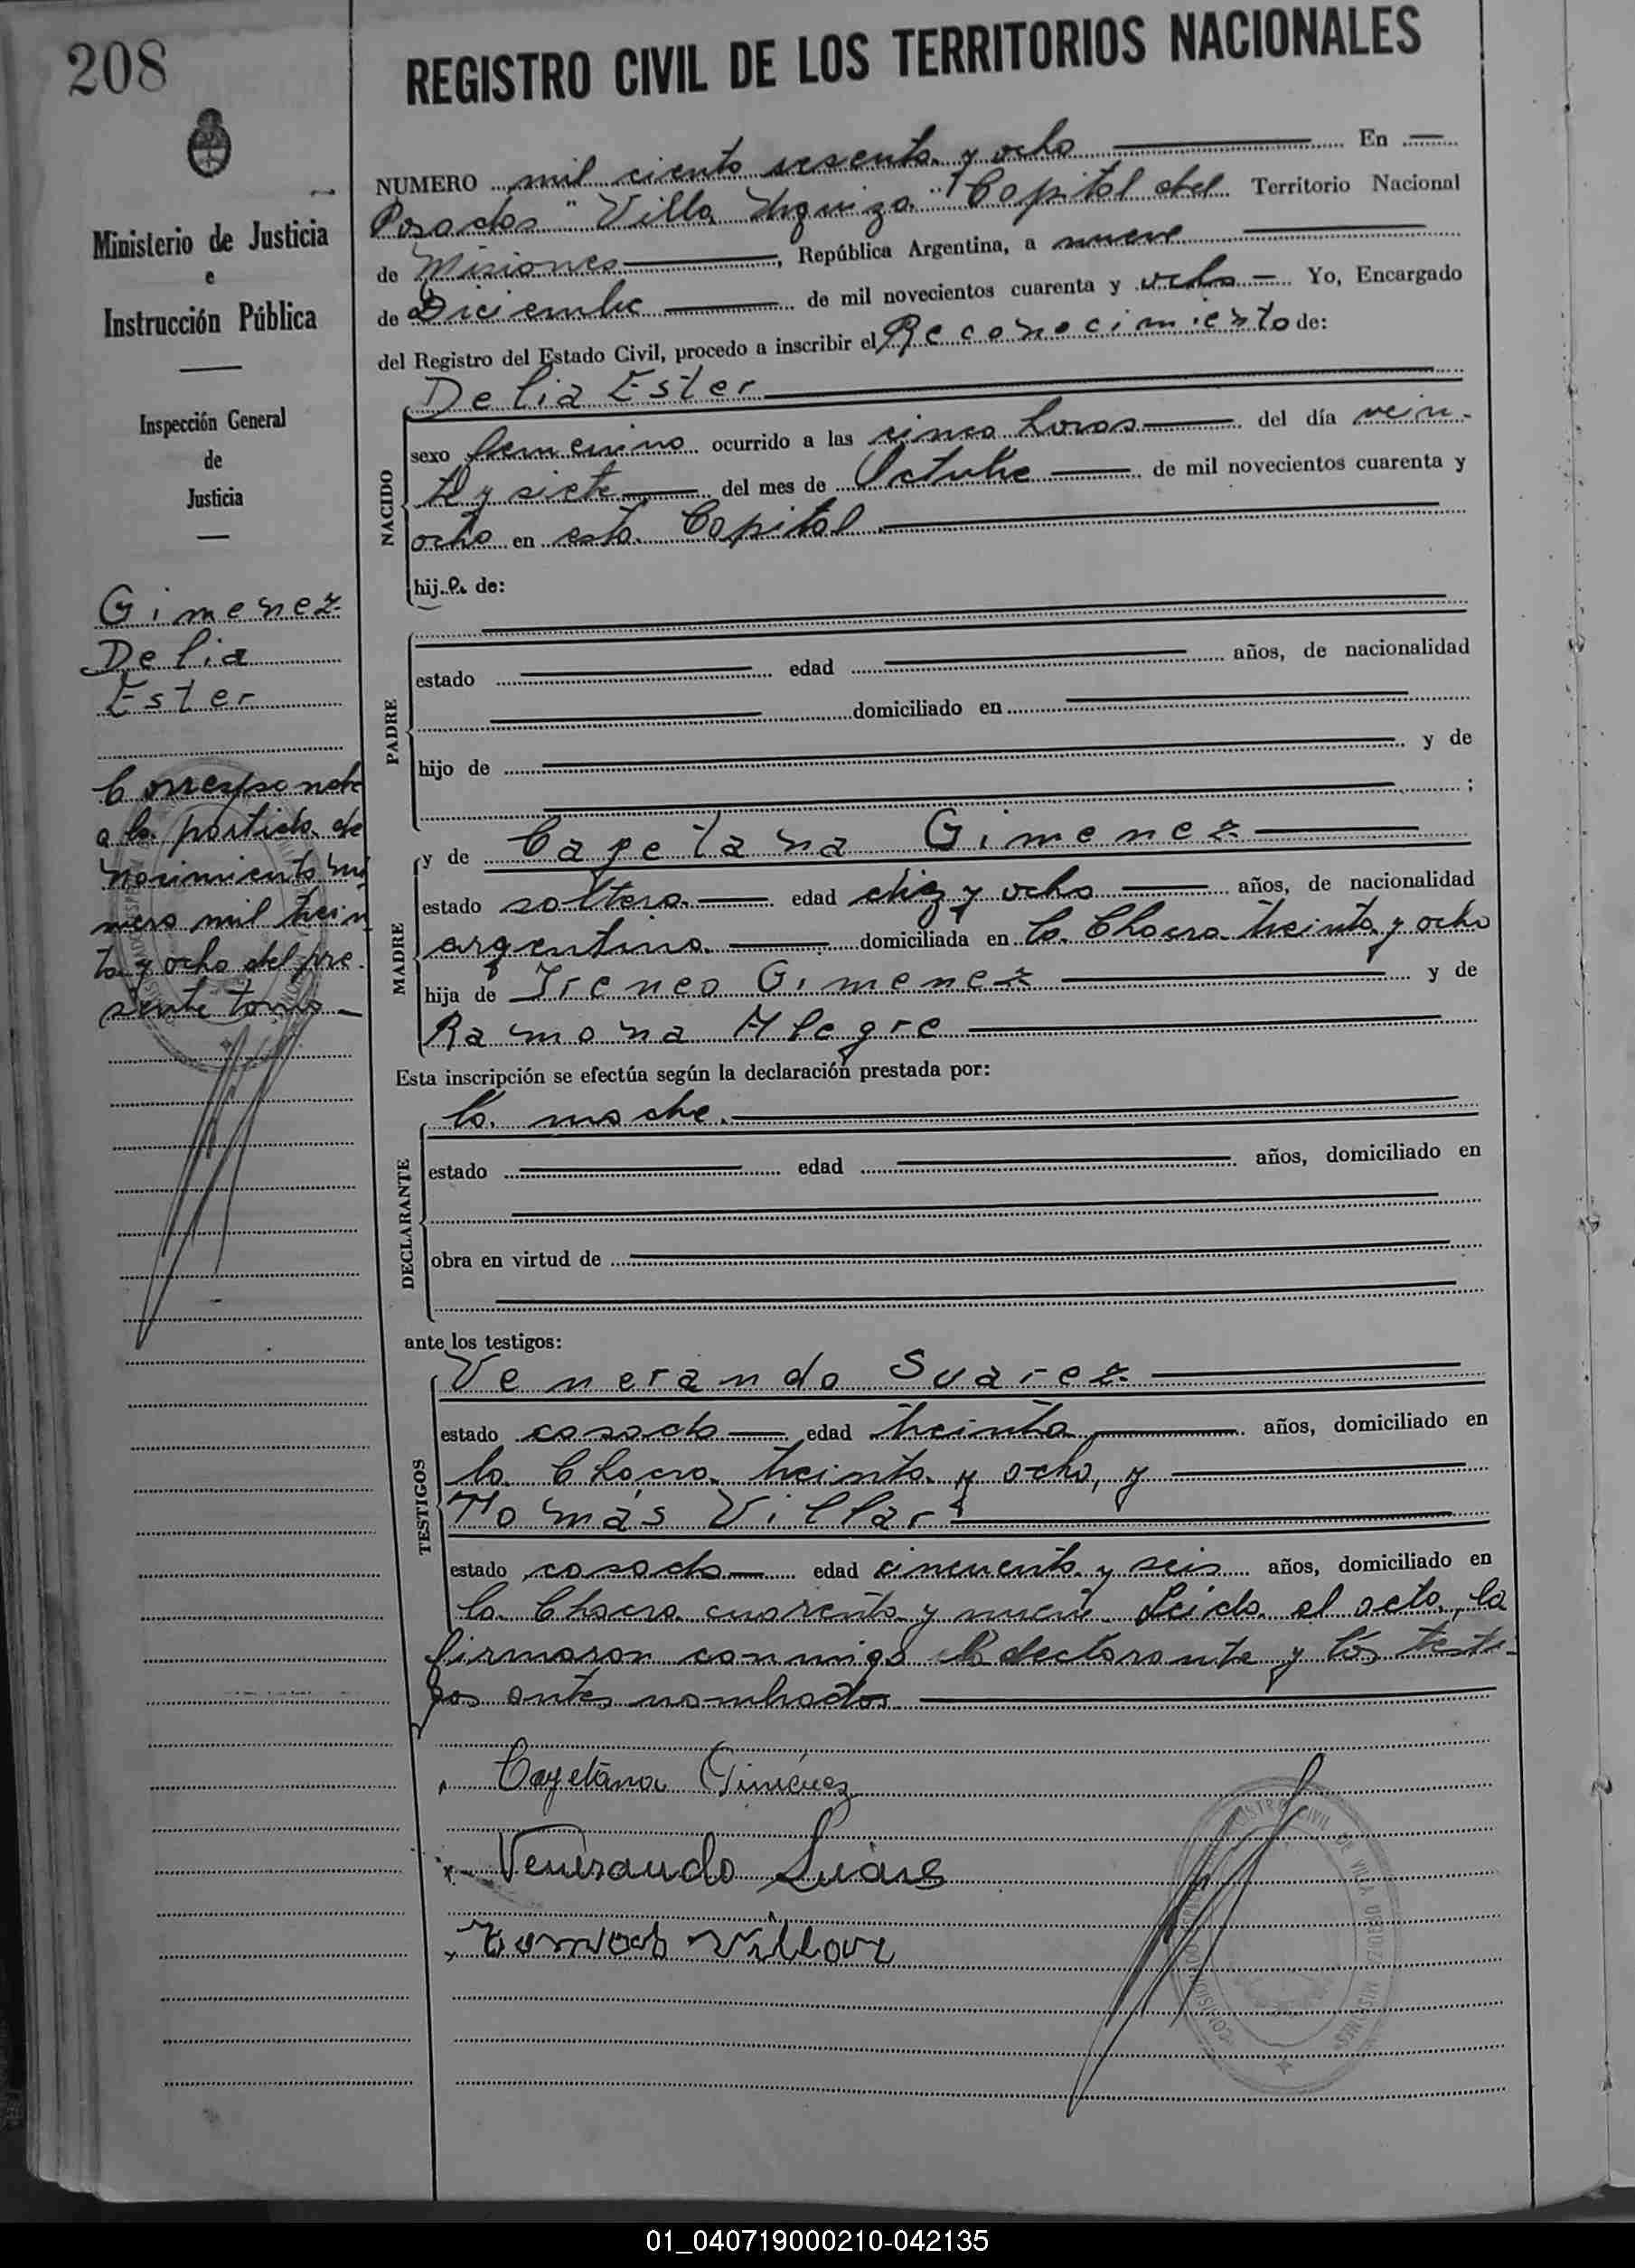 208
REGISTRO CIVIL DE LOS TERRITORIOS NACIONALES
Ministerio de Justicia
e
Instrucción Pública
Inspección General
de
Justicia
Gimenez
Delia
Ester
Corresponde
a la partida de
nacimiento nú
mero mil trein
ta y ocho del pre-
sente tomo
NUMERO mil ciento sesenta y ocho En
Posadas "Villa Urquiza" Capital del Territorio Nacional
de Misiones, República Argentina, a nueve
de Diciembre de mil novecientos cuarenta y ocho Yo, Encargado
del Registro del Estado Civil, procedo a inscribir el Reconocimiento de:
Delia Ester
NACIDO
sexo femenino ocurrido a las cinco horas del día vein-
te y siete del mes de Octubre de mil novecientos cuarenta y
ocho en esta Capital
hij a de:
PADRE
estado edad años, de nacionalidad
domiciliado en
hijo de y de
;
MADRE
y de Cayetana Gimenez
estado soltera edad diez y ocho años, de nacionalidad
argentina domiciliada en la Chacra treinta y ocho
hija de Ireneo Gimenez y de
Ramona Alegre
Esta inscripción se efectúa según la declaración prestada por:
DECLARANTE
la madre.
estado edad años, domiciliado en
obra en virtud de
ante los testigos:
TESTIGOS
Venerando Suarez
estado casado edad treinta años, domiciliado en
la Chacra treinta y ocho, y
Tomás Villar
estado casado edad cincuenta y seis años, domiciliado en
la Chacra cuarenta y nueve. Leida el acta, la
firmaron conmigo la declarante y los testi-
gos antes nombrados
Cayetana Giménez
Venerando Suares
Tomas Villar
01_040719000210-042135